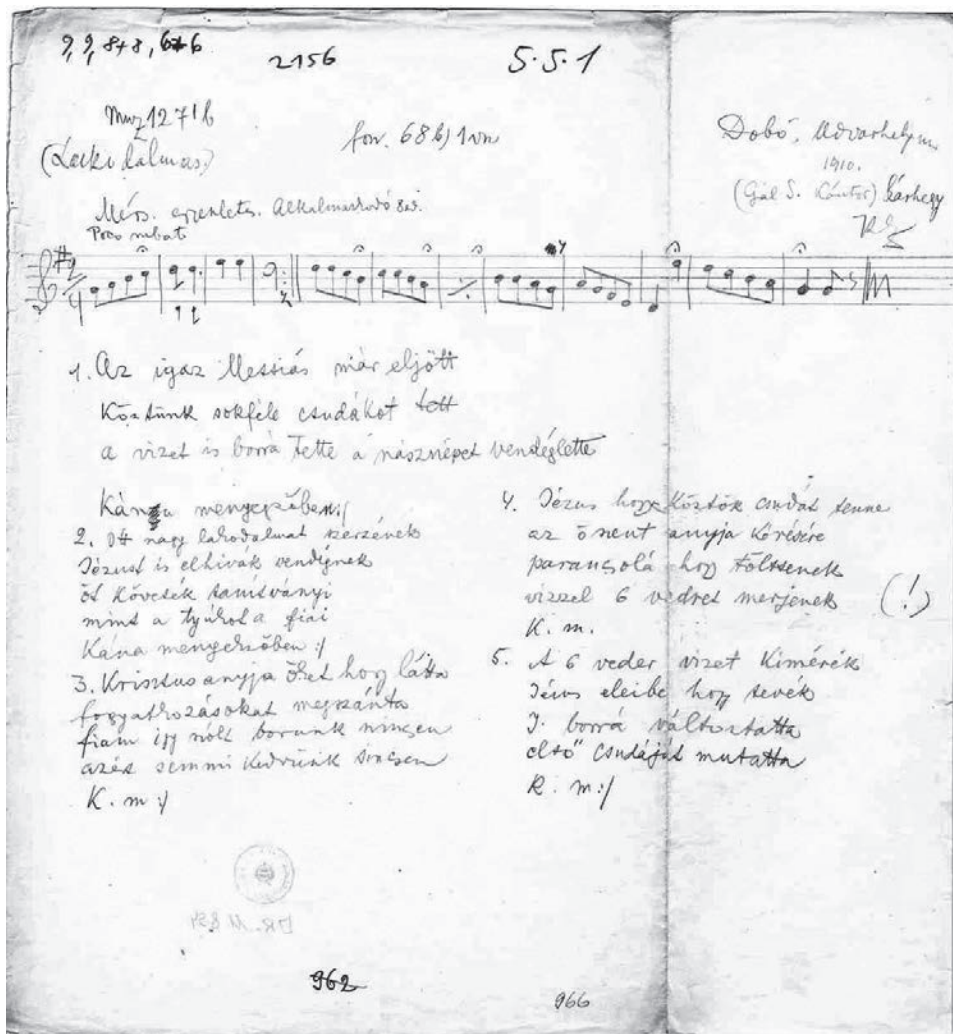 9, 9, 8+8, 6+6
2156
5.5.1
127/b
68 b)
1910.
(Gál S. Kántor)
Poco rubato
1. Az igaz Messiás már eljött
Köztünk sokféle csudákot tett
a vizet is borrá tette a násznépet vendéglette
menyegzőben :/
2. Itt nagy lakodalmat szerzének
Jézust is elhivák vendégnek
őt követék tanítványi
mint a tyúkot a fiai
Kána menyegzőben :/
3. Krisztus anyja őket hogy látta
fogyatkozásokat megszánta
fiam igy szólt borunk nincsen
azés semmi kedvünk sincsen
K. m :/
4. Jézus hogy köztök csudát tenne
az ő szent anyja kérésire
parancsolá hogy töltsenek
vizzel 6 vedret merjenek (!)
K. m.
5. A 6 veder vizet kimérék
Jézus eleibe hogy tevék
J. borrá változtatta
első csudáját mutatta
K. m :/
962
966